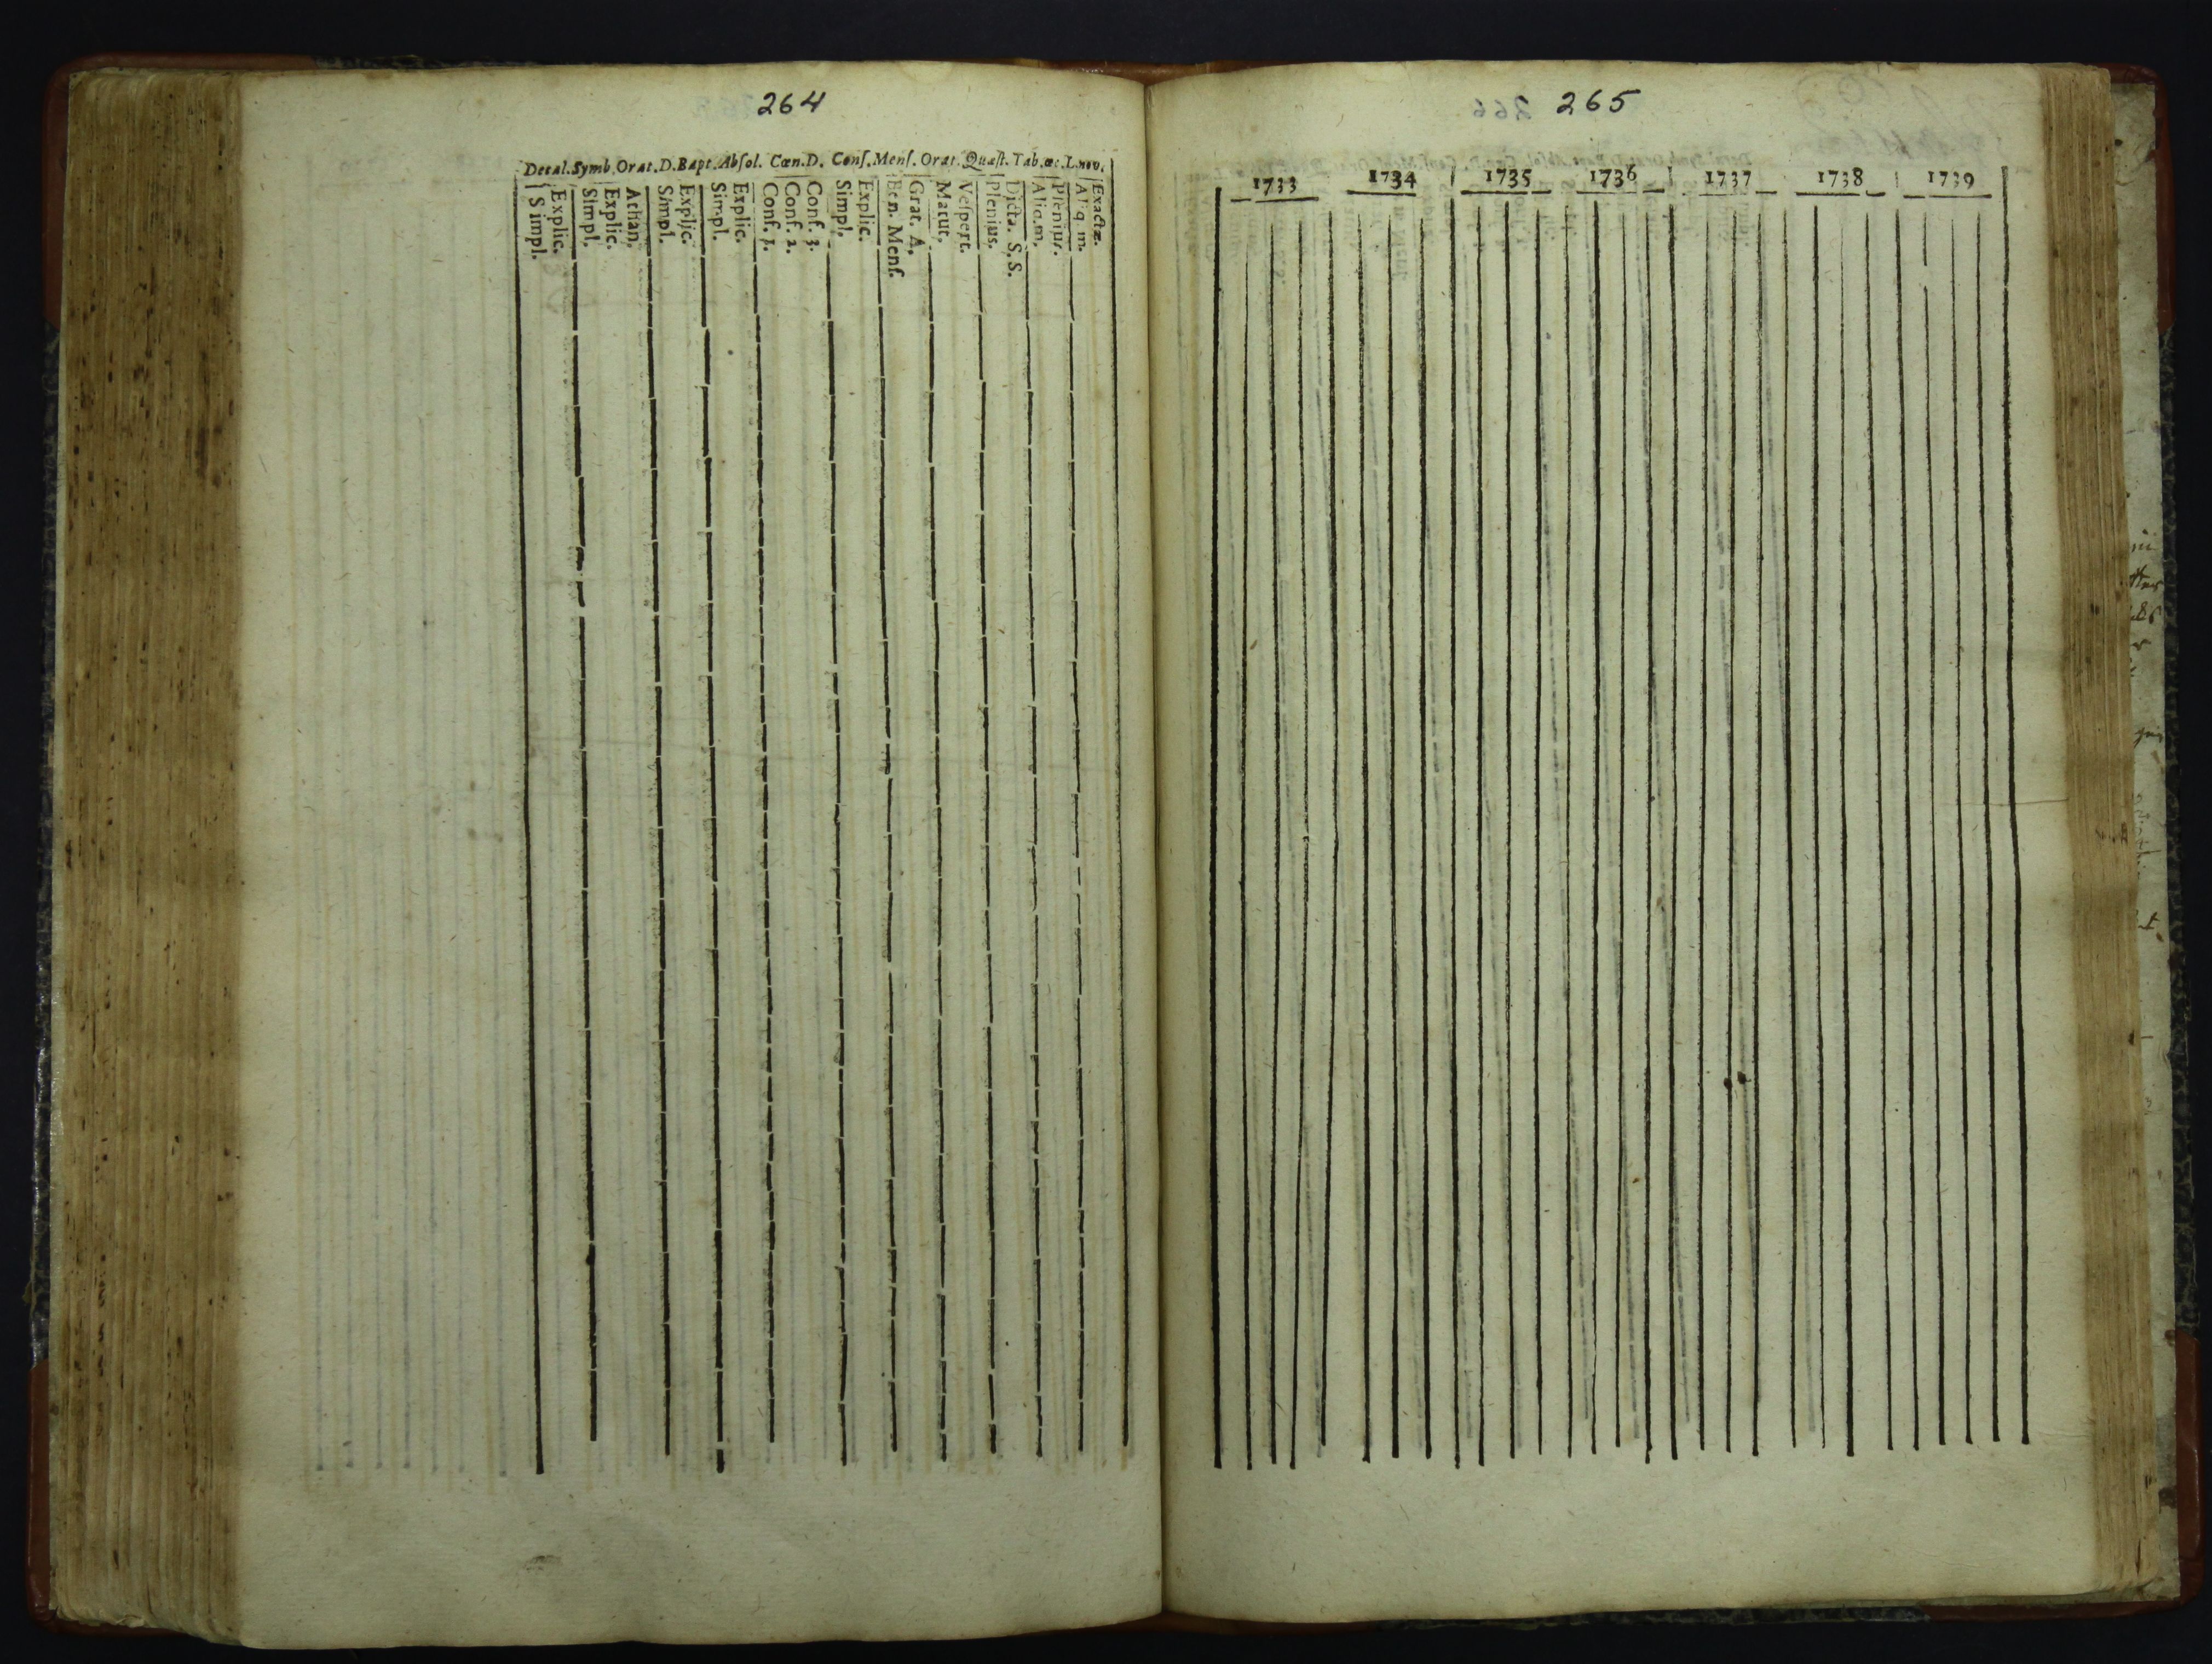 264
Decal. Symb. Orat. D. Bapt. Abſol. Cœn. D. Conſ. Menſ. Orat. Quæſt. Tab. œc. L. nov.
Simpl.
Explic.
Simpl.
Explic.
Athan.
Simpl.
Explic.
Simpl.
Explic.
Conf. 1.
Conf. 2.
Conf. 3.
Simpl.
Explic.
Ben. Menſ.
Grat. A.
Matut.
Veſpert.
Plenius.
Dicta. S. S.
Aliq. m.
Plenius.
Aliq. m.
Exactæ.
265
1733 1734 1735 1736 1737 1738 1739